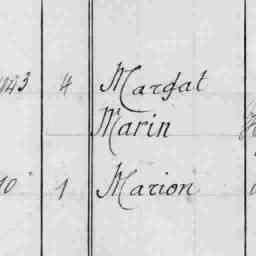 143 4 Margat
Marin
10 1 Marion